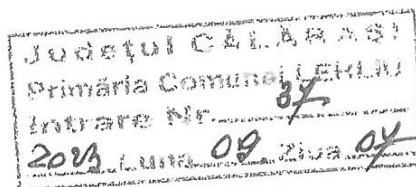 Județul CĂLĂRAȘI
Primăria Comunei LEHLIU
Intrare Nr. 37
2023 Luna 09 Ziua 04